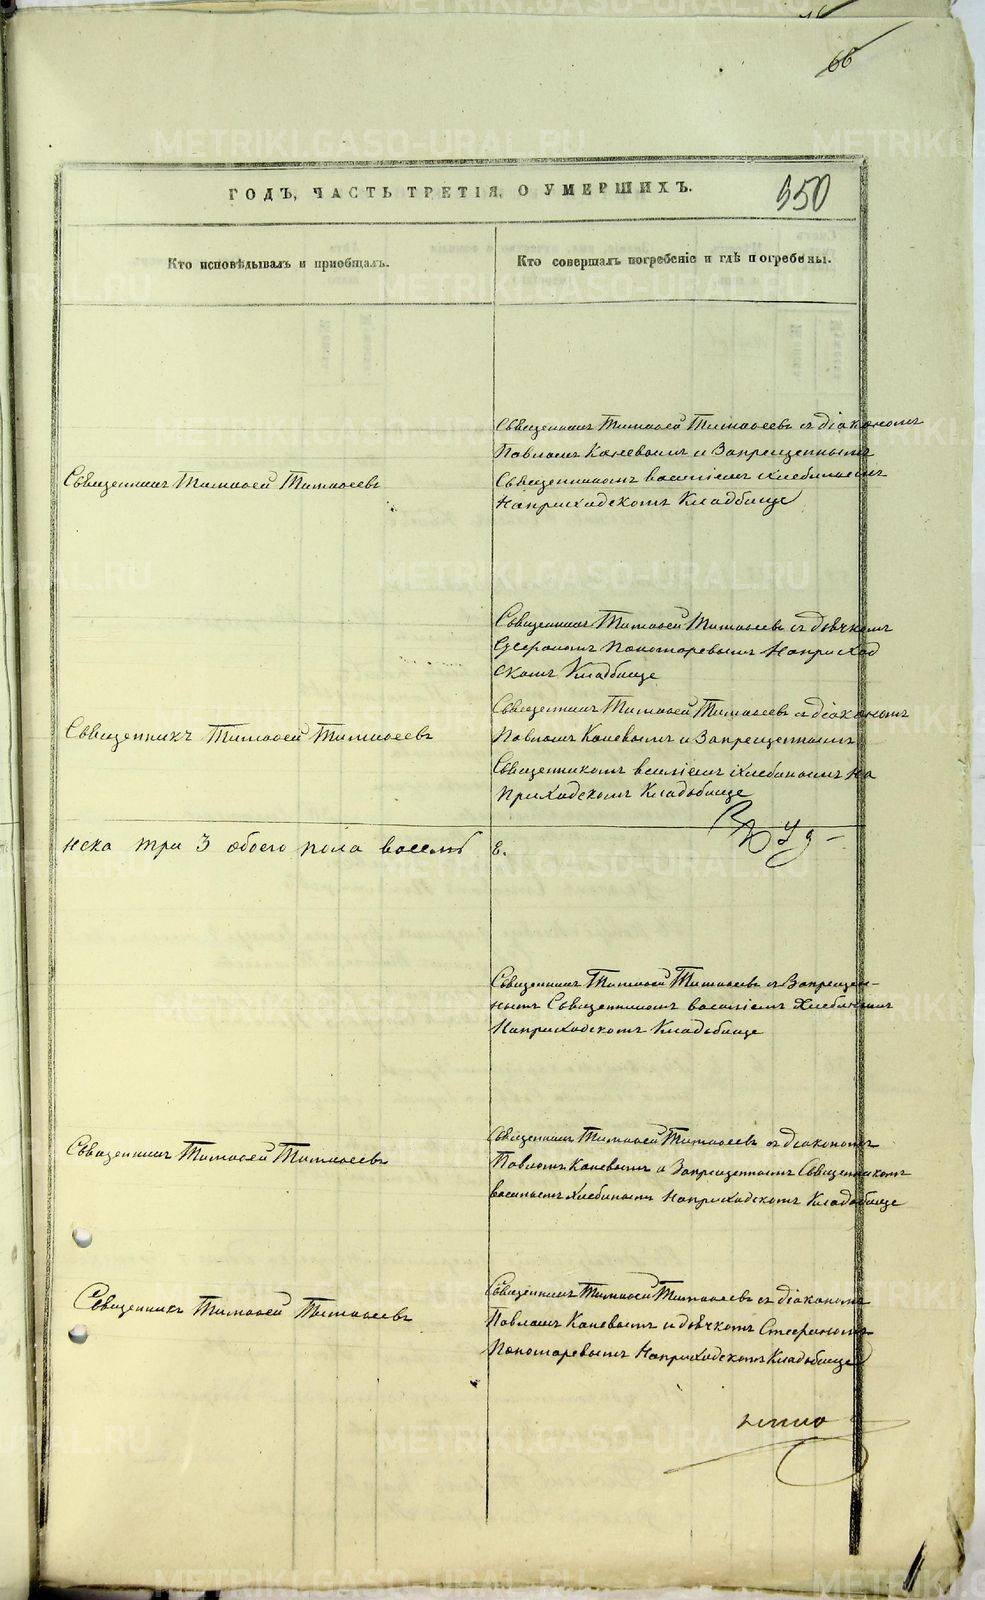 66
ГОДЪ, ЧАСТЬ ТРЕТІЯ, О УМЕРШИХЪ.
350
Кто исповѣдывалъ и пріобщалъ.
Кто совершалъ погребеніе и гдѣ погребены.
Священникъ Тимофей Тимофеевъ съ діакономъ
Павломъ Каневымъ и Запрещеннымъ
Священникъ Тимофей Тимофеевъ
Священникомъ василіемъ
Наприходскомъ Кладбище
Священникъ Тимофей Тимофеевъ съ дьячкомъ
Стефаномъ Пономаревымъ Наприход
скомъ Кладбище
Священникъ Тимофей Тимофеевъ съ діакономъ
Священникъ Тимофей Тимофеевъ
Павломъ Каневымъ и Запрещеннымъ
Священникомъ василіемъ на
приходскомъ Кладбище
нска три 3 обоего пола восемь 8.
Священникъ Тимофей Тимофеевъ съ Запрещен-
нымъ Священникомъ василіемъ
Наприходскомъ Кладбище
Священникъ Тимофей Тимофеевъ съ діакономъ
Священникъ Тимофей Тимофеевъ
Павломъ Каневымъ и Запрещеннымъ Священникомъ
Наприходскомъ Кладбище
Священникъ Тимофей Тимофеевъ съ діакономъ
Священникъ Тимофей Тимофеевъ
Павломъ Каневымъ и дьячкомъ Стефаномъ
Пономаревымъ Наприходскомъ Кладбище
METRIKI.GASO-URAL.RU